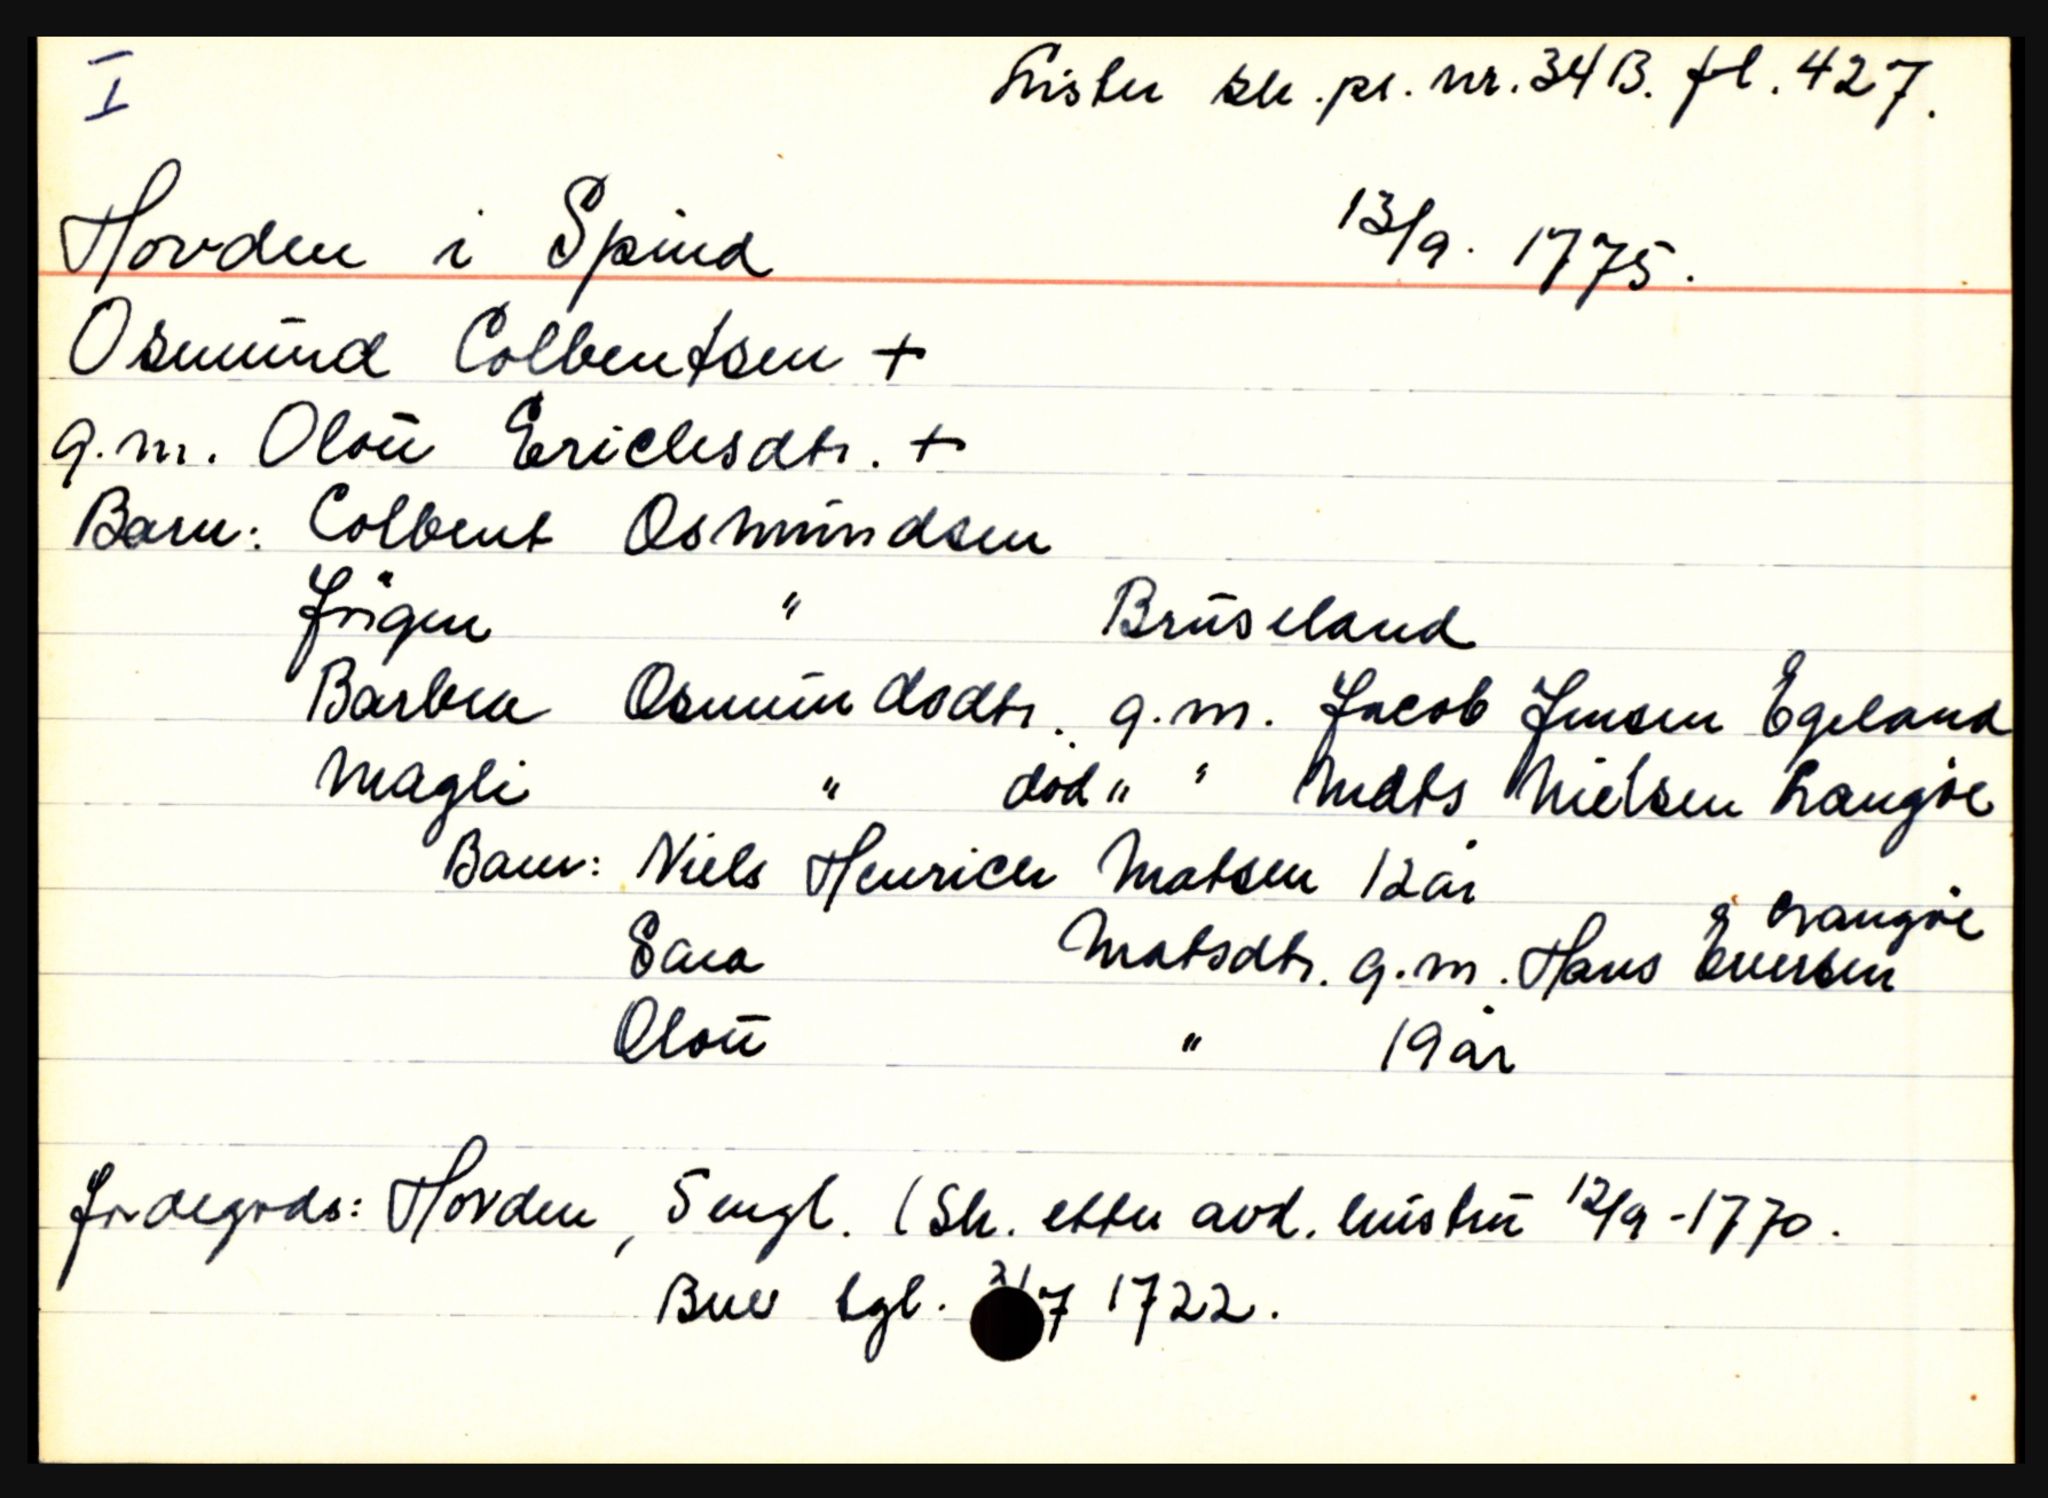 I
Lister sk. pr. nr. 34 B. fl. 427.
Hovden i Spind 13/9. 1775.
Osmund Colbentsen +
g.m. Olou Erichsdtr. +
Barn: Colbent Osmundsen
Jörgen " Bruseland
Barbra Osmundsdtr. g.m. Jacob Jensen Egeland
Magli " död " " Mats Nielsen Langöe
Barn: Niels Henrich Matsen 12 år
Langöe
Sara Matsdtr. g.m. Hans Eversen
Olou " 19 år
Jordegods: Hovden, 5 engl. (Sk. etter avd. hustru 12/9 - 1770.
Brev tgl. 7 1722.